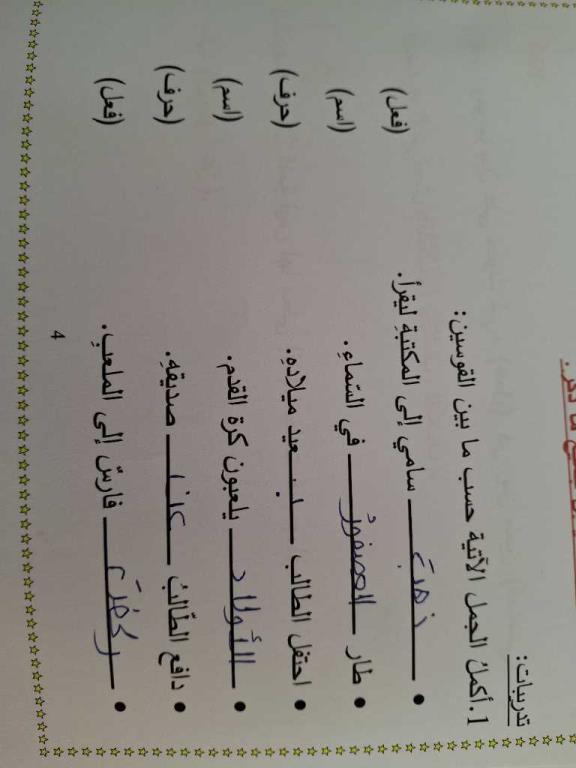 تدريبات:
1. أكملُ الجمل الآتية حسب ما بين القوسين:
• ذهبَ سامي إلى المكتبةِ ليقرأ. (فعل)
• طار العصفورُ في السّماءِ. (اسم)
• احتفل الطالب بـ ـعيد ميلاده. (حرف)
• الأولاد يلعبون كرة القدم. (اسم)
• دافع الطّالبُ عن صديقهِ. (حرف)
• ركضَ فارسٌ إلى الملعبِ. (فعل)
4